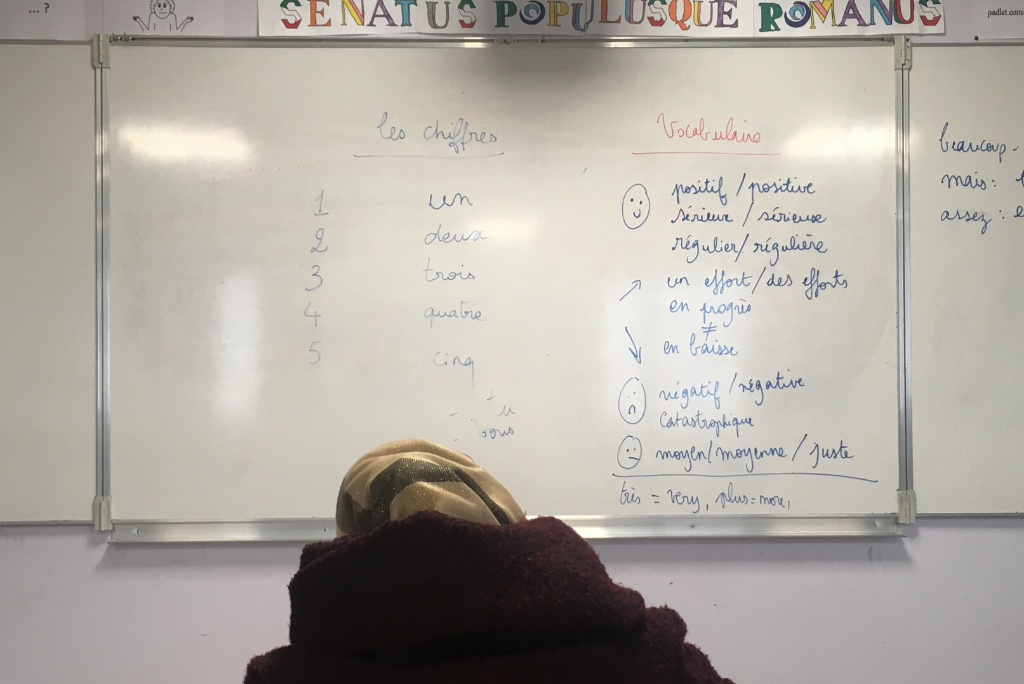 ... ?
SENATUS POPULUSQUE ROMANUS
padlet.com
les chiffres
1 un
2 deux
3 trois
4 quatre
5 cinq
tu
vous
Vocabulaire
positif / positive
sérieux / sérieuse
régulier / régulière
un effort / des efforts
en progrès
≠
en baisse
négatif / négative
catastrophique
moyen / moyenne / juste
très = very, plus = more,
beaucoup =
mais :
assez :